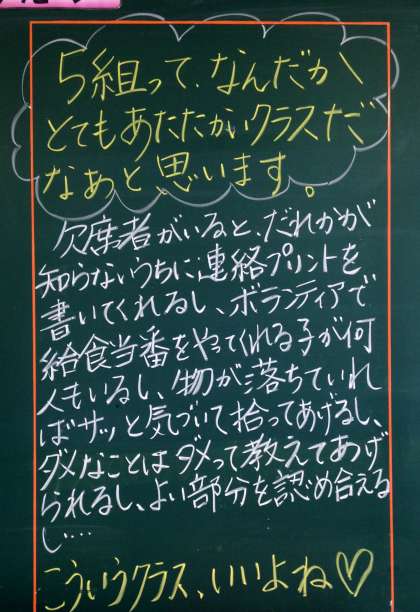 5組って、なんだか
とてもあたたかいクラスだ
なぁと、思います。
欠席者がいると、だれかが
知らないうちに連絡プリントを
書いてくれるし、ボランティアで
給食当番をやってくれる子が何
人もいるし、物が落ちていれ
ばサッと気づいて拾ってあげるし、
ダメなことはダメって教えてあげ
られるし、よい部分を認め合える
し…
こういうクラス、いいよね♡